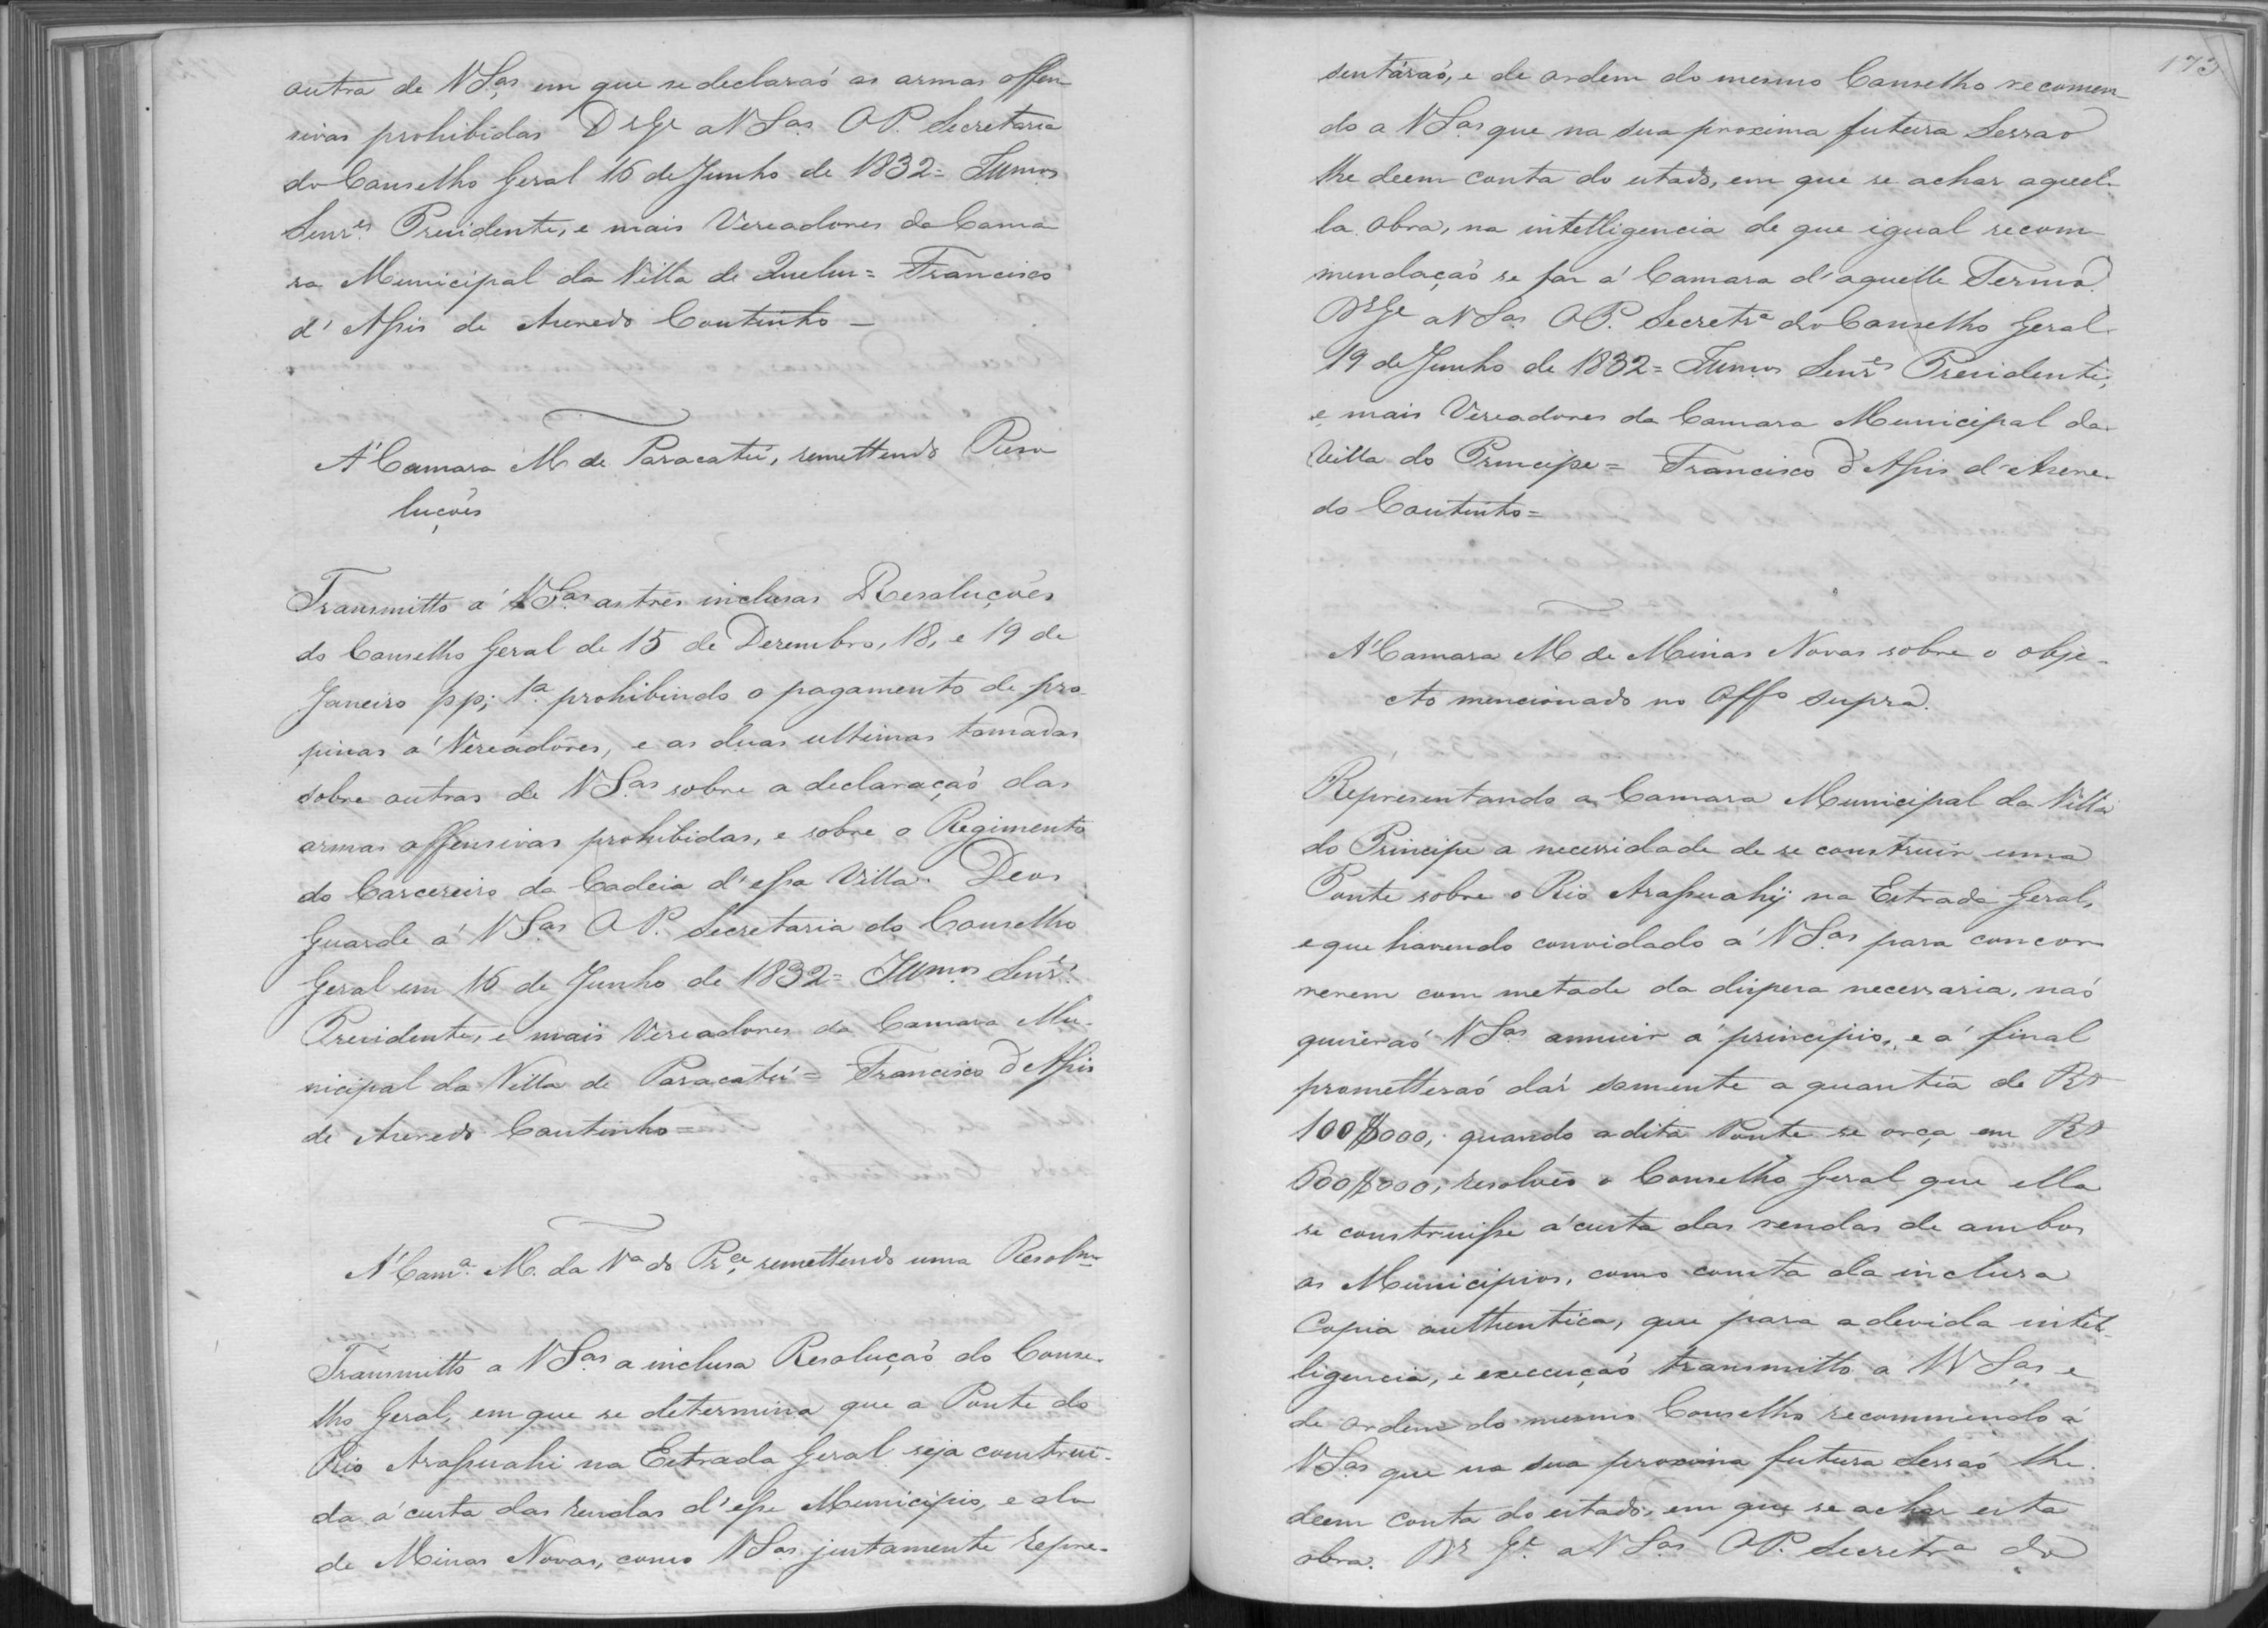 outra de VSas em que se declaraõ as armas offen
sivas prohibidas DsGe a VSas OP. Secretaria
do Conselho Geral 16 de Junho de 1832= Illmos
Senres Presidente, e mais Vereadores da Cama
ra Municipal da Villa de Queluz= Francisco
d'Assis de Azeredo Coutinho—
A' Camara M. de Paracatú, remettendo Reso
luções
Transmitto á VSas as tres inclusas Resoluções
do Conselho Geral de 15 de Dezembro, 18, e 19 de
Janeiro pp; 1ª prohibindo o pagamento de pro
pinas a' Vereadores, e as duas ultimas tomadas
sobre outras de VSas sobre a declaraçaõ das
armas offensivas prohibidas, e sobre o Regimento
do Carcereiro da Cadeia d'essa Villa. Deos
Guarde á VSas OP. Secretaria do Conselho
Geral em 16 de Junho de 1832= Illmos Senres
Presidente, e mais Vereadores da Camara Mu-
nicipal da Villa de Paracatú= Francisco d'Assis
de Azeredo Coutinho=
A' Camª M. da Vª do Prce, remettendo uma Resolm
Transmitto a VSas a inclusa Resoluçaõ do Conse-
lho Geral, em que se determina que a Ponte do
Rio Arassuahi na Estrada Geral seja construi-
da á custa das rendas d'esse Municipio, e do
de Minas Novas, como VSas justamente repre-
173
sentáraõ, e de ordem do mesmo Conselho recomen
do a VSas que na sua proxima futura Sessaõ
lhe deem conta do estado, em que se achar aquel-
la obra, na intelligencia de que igual recom
mendaçaõ se faz á Camara d'aquelle Termo.
DsGe a VSas OP. Secretrª do Conselho Geral
19 de Junho de 1832= Illmos Senres Presidente,
e mais Vereadores da Camara Municipal da
Villa do Principe= Francisco d'Assis d'Azere-
do Coutinho=
A' Camara M de Minas Novas sobre o obje-
cto mencionado no Offo supra.
Representando a Camara Municipal da Villa
do Principe a necessidade de se construir uma
Ponte sobre o Rio Arassuahÿ na Estrada Geral,
e que havendo convidado a' VSas para concor
rerem com metade da dispesa necessaria, naõ
quiseraõ VSas annuir a' principio, e a' final
prometteraõ dár somente a quantia de Rs
100$000, quando a dita Ponte se orça em Rs
600$000; resolveo o Conselho Geral que ella
se construisse á custa das rendas de ambos
os Municipios, como consta da inclusa
Copia authentica, que para a devida intel-
ligencia, e execuçaõ transmitto a VVSas e
de ordem do mesmo Conselho recommendo á
VSas que na sua proxima futura Sessaõ lhe
deem conta do estado, em que se achar esta
obra. Ds Ge a VSas OP. Secretrª do